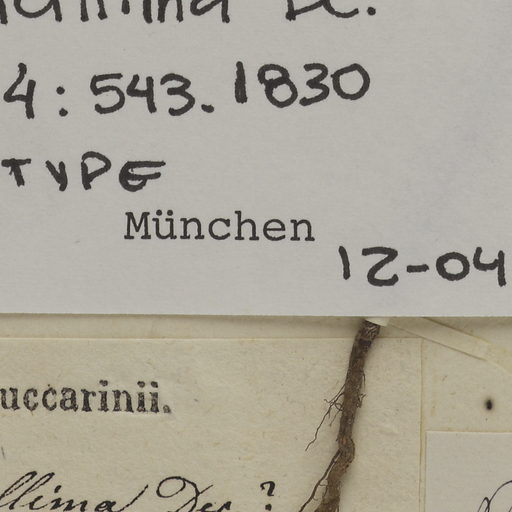 DC.
4:543.1830
TYPE
München
12-04
uccarinii.
llima Dec ?